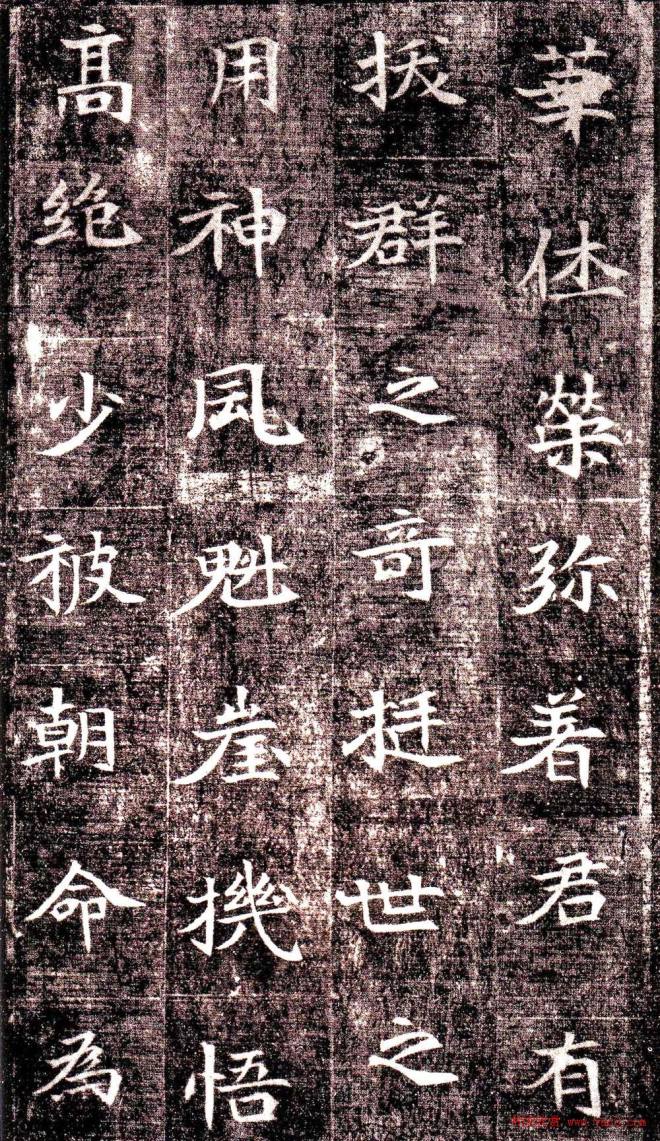 華体榮弥著君有
拔群之奇挺世之
用神風魁崖機悟
髙絶少被朝命為